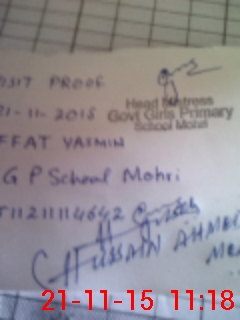 ISIT PROOF
21-11-2015
Head Mistress
Govt Girls Primary
School Mohri
FFAT YASMIN
G P School Mohri
HUSSAIN AHMED
21-11-15 11:18